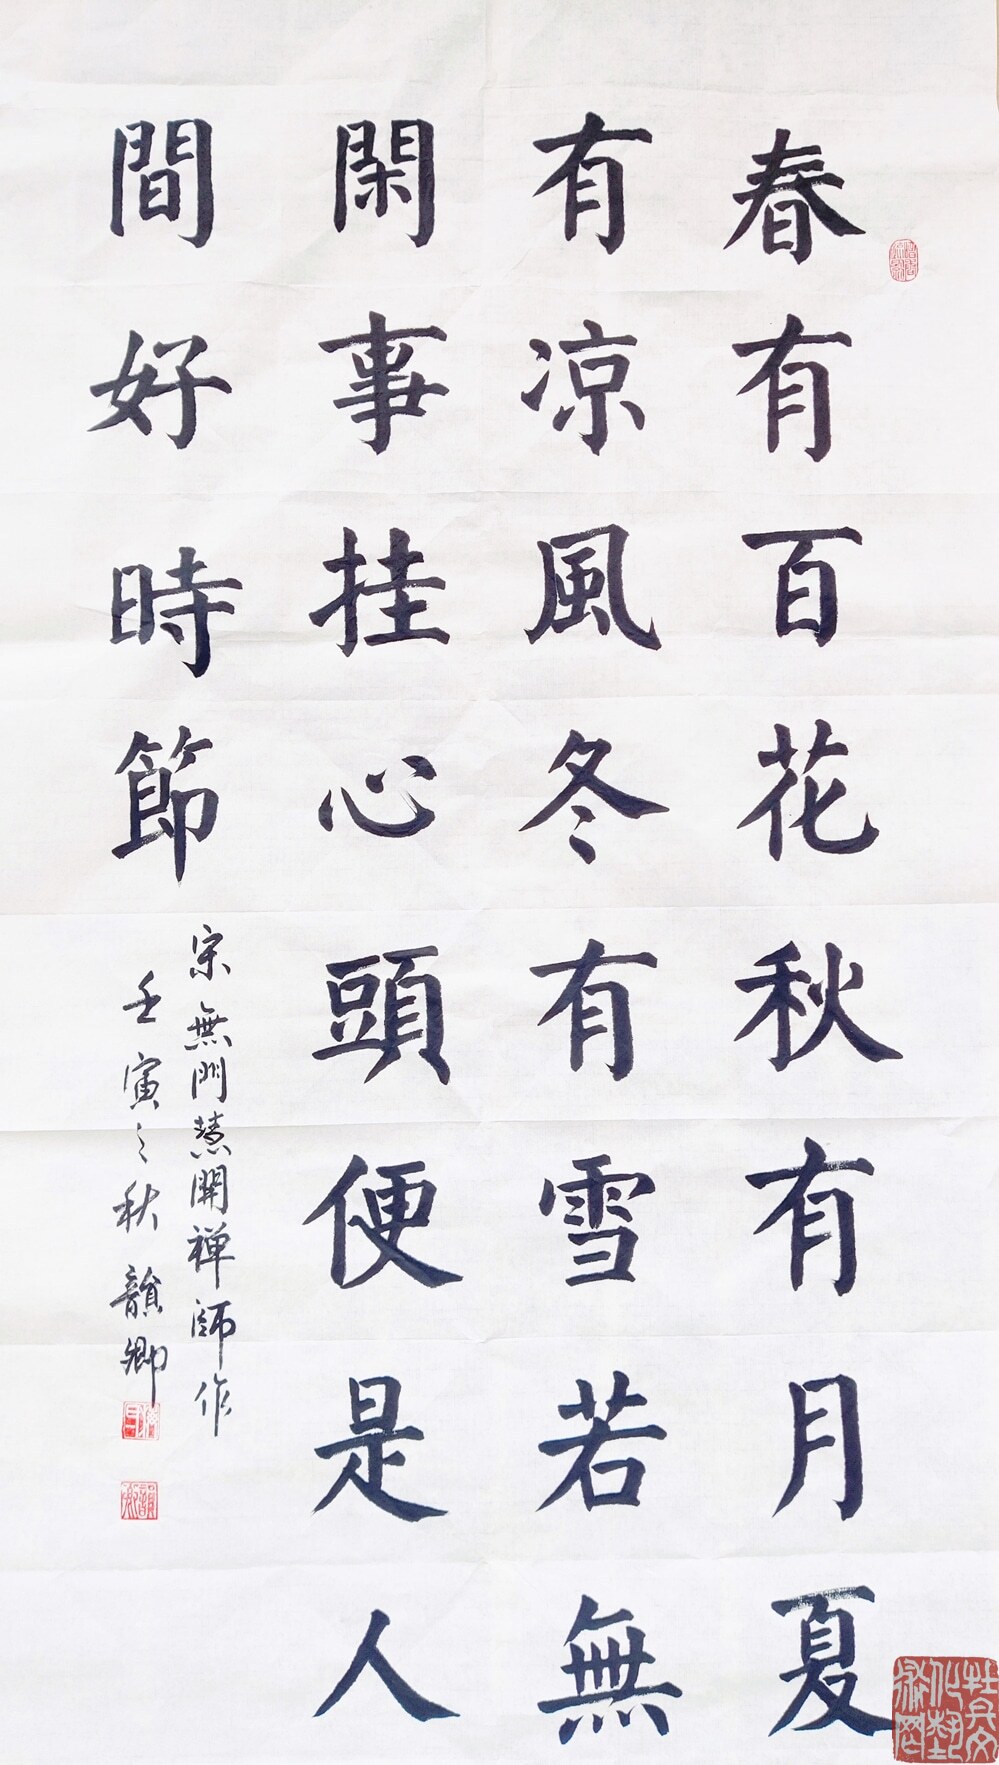 春有百花秋有月夏
有凉風冬有雪若無
閑事挂心頭便是人
間好時節
宋無門慧開禅師作
壬寅之秋韻卿